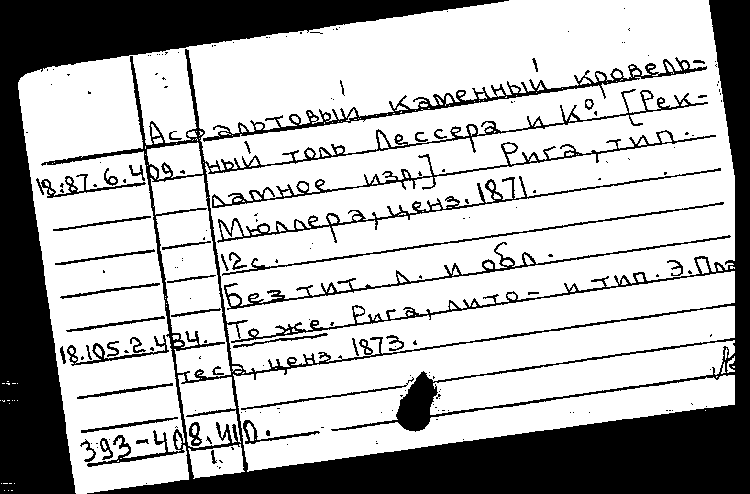 Асфальтовый каменный кровель-
18.87.6.409. ный толь Лессера и К°. [Рек-
ламное изд.]. Рига, тип.
Мюллера, ценз. 1871.
12 с.
Без тит. л. и обл.
18.105.2.434. То же. Рига, лито- и тип. Э. Пла
теса, ценз. 1873.
393-408,